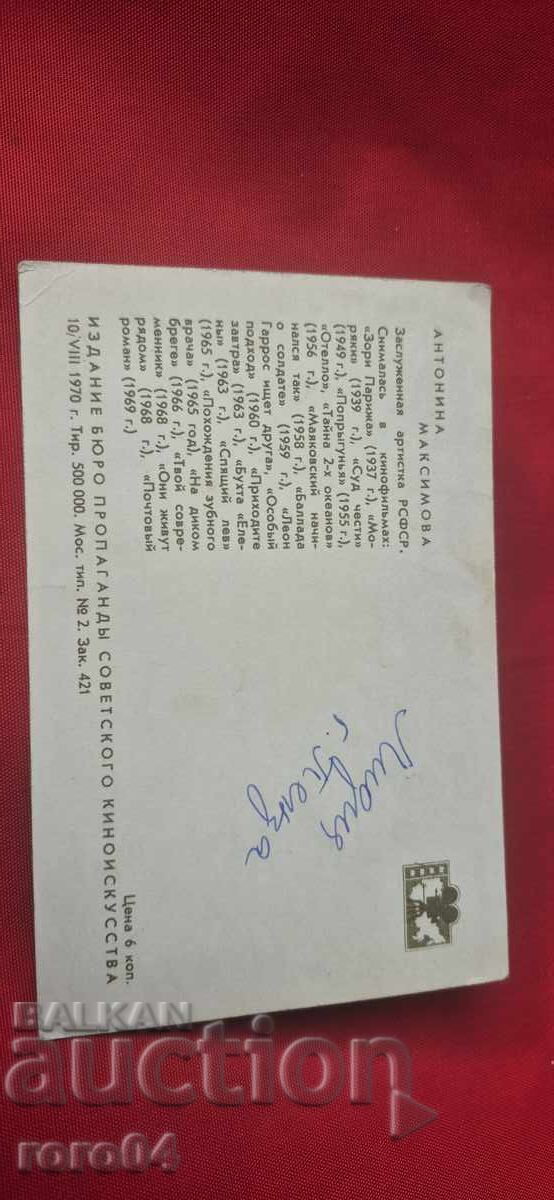 АНТОНИНА МАКСИМОВА
Заслуженная артистка РСФСР.
Снималась в кинофильмах:
«Зори Парижа» (1937 г.), «Мо-
ряки» (1939 г.), «Суд чести»
(1949 г.), «Попрыгунья» (1955 г.),
«Отелло», «Тайна 2-х океанов»
(1956 г.), «Маяковский начи-
нался так» (1958 г.), «Баллада
о солдате» (1959 г.), «Леон
Гаррос ищет друга», «Особый
подход» (1960 г.), «Приходите
завтра» (1963 г.), «Бухта «Еле-
ны» (1963 г.), «Спящий лев»
(1965 г.), «Похождения зубного
врача» (1965 год), «На диком
бреге» (1966 г.), «Твой совре-
менник» (1968 г.), «Они живут
рядом» (1968 г.), «Почтовый
роман» (1969 г.)
Лидия
г. Пенза
Цена 6 коп.
ИЗДАНИЕ БЮРО ПРОПАГАНДЫ СОВЕТСКОГО КИНОИСКУССТВА
10/VIII 1970 г. Тир. 500 000. Мос. тип. № 2. Зак. 421
BALKAN
auction
roro04